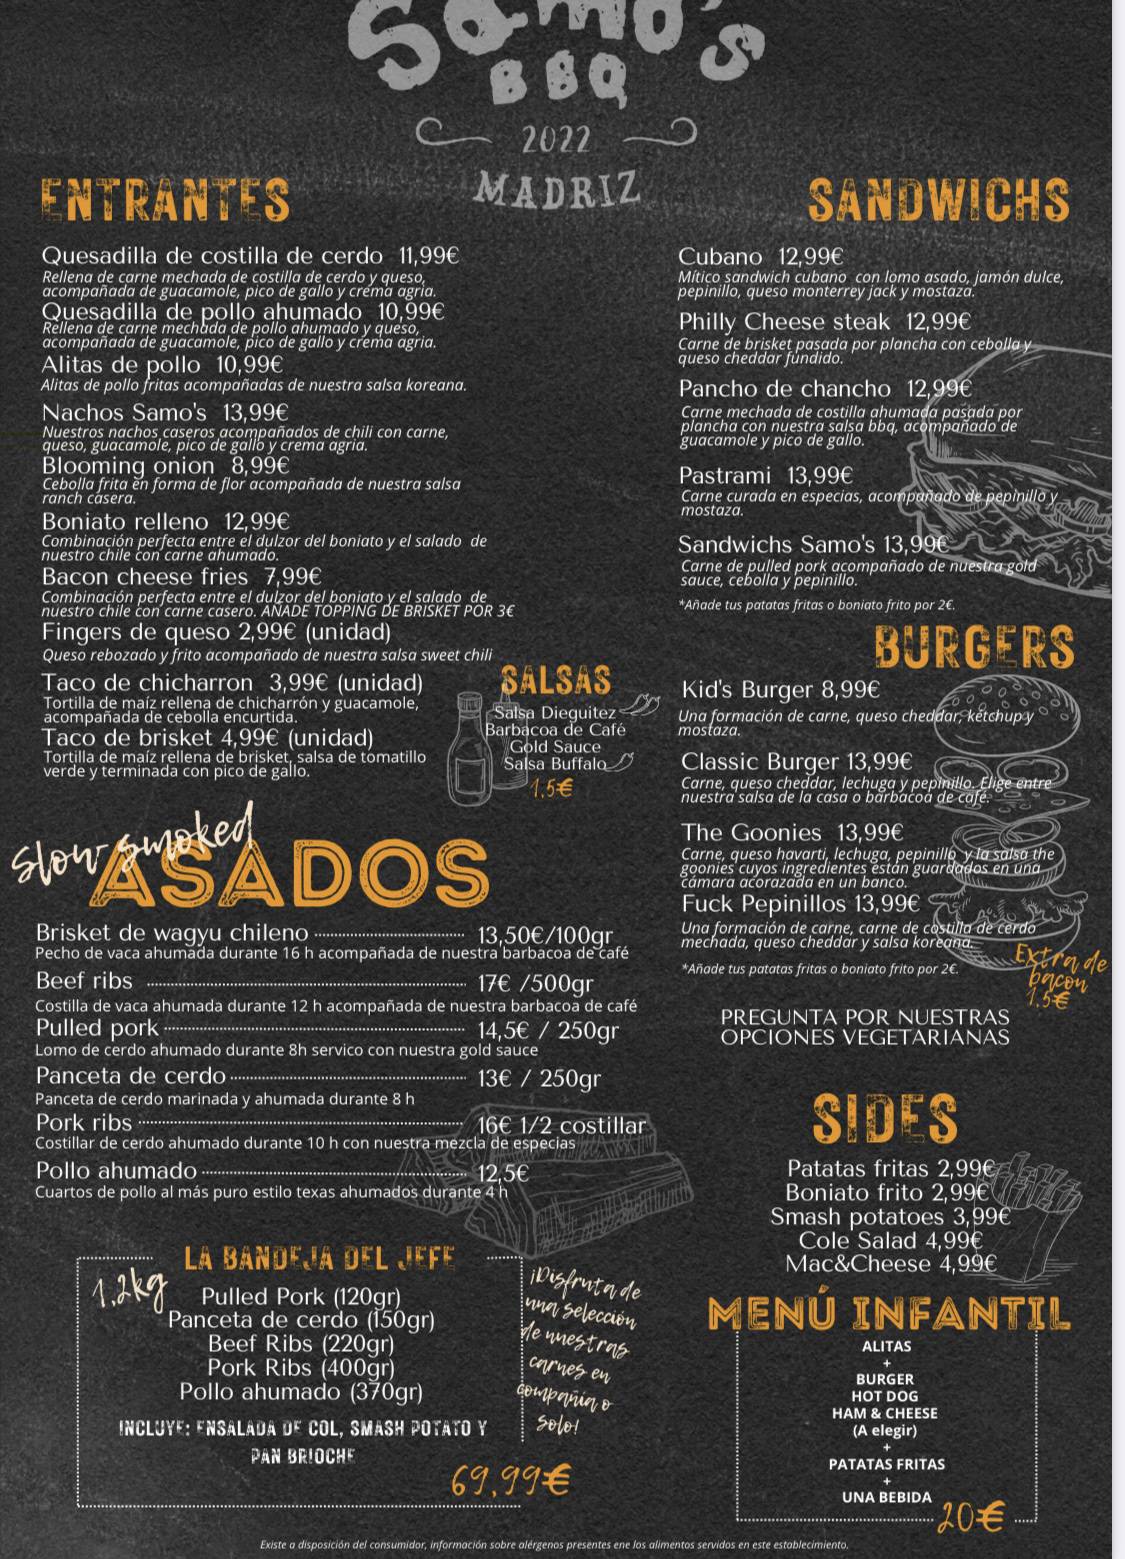 Samo's
BBQ
2022
MADRIZ
ENTRANTES
Quesadilla de costilla de cerdo 11,99€
Rellena de carne mechada de costilla de cerdo y queso,
acompañada de guacamole, pico de gallo y crema agria.
Quesadilla de pollo ahumado 10,99€
Rellena de carne mechada de pollo ahumado y queso,
acompañada de guacamole, pico de gallo y crema agria.
Alitas de pollo 10,99€
Alitas de pollo fritas acompañadas de nuestra salsa koreana.
Nachos Samo's 13,99€
Nuestros nachos caseros acompañados de chili con carne,
queso, guacamole, pico de gallo y crema agria.
Blooming onion 8,99€
Cebolla frita en forma de flor acompañada de nuestra salsa
ranch casera.
Boniato relleno 12,99€
Combinación perfecta entre el dulzor del boniato y el salado de
nuestro chile con carne ahumado.
Bacon cheese fries 7,99€
Combinación perfecta entre el dulzor del boniato y el salado de
nuestro chile con carne casero. AÑADE TOPPING DE BRISKET POR 3€
Fingers de queso 2,99€ (unidad)
Queso rebozado y frito acompañado de nuestra salsa sweet chili
Taco de chicharron 3,99€ (unidad)
Tortilla de maíz rellena de chicharrón y guacamole,
acompañada de cebolla encurtida.
Taco de brisket 4,99€ (unidad)
Tortilla de maíz rellena de brisket, salsa de tomatillo
verde y terminada con pico de gallo.
SALSAS
Salsa Dieguitez
Barbacoa de Café
Gold Sauce
Salsa Buffalo
1,5€
slow smoked
ASADOS
Brisket de wagyu chileno 13,50€/100gr
Pecho de vaca ahumada durante 16 h acompañada de nuestra barbacoa de café
Beef ribs 17€ /500gr
Costilla de vaca ahumada durante 12 h acompañada de nuestra barbacoa de café
Pulled pork 14,5€ / 250gr
Lomo de cerdo ahumado durante 8h servico con nuestra gold sauce
Panceta de cerdo 13€ / 250gr
Panceta de cerdo marinada y ahumada durante 8 h
Pork ribs 16€ 1/2 costillar
Costillar de cerdo ahumado durante 10 h con nuestra mezcla de especias
Pollo ahumado 12,5€
Cuartos de pollo al más puro estilo texas ahumados durante 4 h
LA BANDEJA DEL JEFE
1,2kg
Pulled Pork (120gr)
Panceta de cerdo (150gr)
Beef Ribs (220gr)
Pork Ribs (400gr)
Pollo ahumado (370gr)
INCLUYE: ENSALADA DE COL, SMASH POTATO Y
PAN BRIOCHE
69,99€
¡Disfruta de
una selección
de nuestras
carnes en
compañía o
solo!
SANDWICHS
Cubano 12,99€
Mítico sandwich cubano con lomo asado, jamón dulce,
pepinillo, queso monterrey jack y mostaza.
Philly Cheese steak 12,99€
Carne de brisket pasada por plancha con cebolla y
queso cheddar fundido.
Pancho de chancho 12,99€
Carne mechada de costilla ahumada pasada por
plancha con nuestra salsa bbq, acompañado de
guacamole y pico de gallo.
Pastrami 13,99€
Carne curada en especias, acompañado de pepinillo y
mostaza.
Sandwichs Samo's 13,99€
Carne de pulled pork acompañado de nuestra gold
sauce, cebolla y pepinillo.
*Añade tus patatas fritas o boniato frito por 2€.
BURGERS
Kid's Burger 8,99€
Una formación de carne, queso cheddar, kétchup y
mostaza.
Classic Burger 13,99€
Carne, queso cheddar, lechuga y pepinillo. Elige entre
nuestra salsa de la casa o barbacoa de café.
The Goonies 13,99€
Carne, queso havarti, lechuga, pepinillo y la salsa the
goonies cuyos ingredientes están guardados en una
cámara acorazada en un banco.
Fuck Pepinillos 13,99€
Una formación de carne, carne de costilla de cerdo
mechada, queso cheddar y salsa koreana.
*Añade tus patatas fritas o boniato frito por 2€.
Extra de
bacon
1,5€
PREGUNTA POR NUESTRAS
OPCIONES VEGETARIANAS
SIDES
Patatas fritas 2,99€
Boniato frito 2,99€
Smash potatoes 3,99€
Cole Salad 4,99€
Mac&Cheese 4,99€
MENÚ INFANTIL
ALITAS
+
BURGER
HOT DOG
HAM & CHEESE
(A elegir)
+
PATATAS FRITAS
+
UNA BEBIDA
20€
Existe a disposición del consumidor, información sobre alérgenos presentes ene los alimentos servidos en este establecimiento.